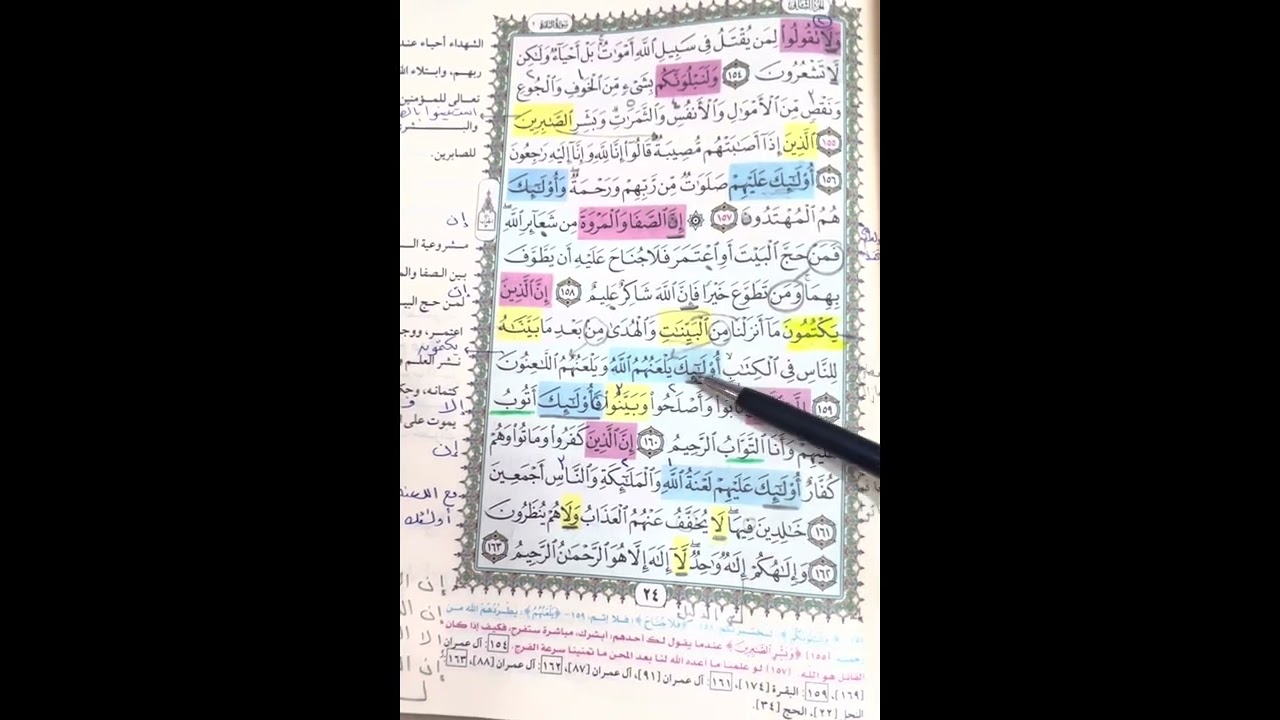 الجزء الثاني
سورة البقرة ٢
وَلَا تَقُولُوا۟ لِمَن يُقْتَلُ فِى سَبِيلِ ٱللَّهِ أَمْوَٰتٌۢ بَلْ أَحْيَآءٌ وَلَٰكِن
لَّا تَشْعُرُونَ ١٥٤ وَلَنَبْلُوَنَّكُم بِشَىْءٍ مِّنَ ٱلْخَوْفِ وَٱلْجُوعِ
وَنَقْصٍ مِّنَ ٱلْأَمْوَٰلِ وَٱلْأَنفُسِ وَٱلثَّمَرَٰتِ وَبَشِّرِ ٱلصَّٰبِرِينَ
١٥٥ ٱلَّذِينَ إِذَآ أَصَٰبَتْهُم مُّصِيبَةٌ قَالُوٓا۟ إِنَّا لِلَّهِ وَإِنَّآ إِلَيْهِ رَٰجِعُونَ
١٥٦ أُو۟لَٰٓئِكَ عَلَيْهِمْ صَلَوَٰتٌ مِّن رَّبِّهِمْ وَرَحْمَةٌ وَأُو۟لَٰٓئِكَ
هُمُ ٱلْمُهْتَدُونَ ١٥٧ ۞ إِنَّ ٱلصَّفَا وَٱلْمَرْوَةَ مِن شَعَآئِرِ ٱللَّهِ
فَمَنْ حَجَّ ٱلْبَيْتَ أَوِ ٱعْتَمَرَ فَلَا جُنَاحَ عَلَيْهِ أَن يَطَّوَّفَ
بِهِمَا وَمَن تَطَوَّعَ خَيْرًا فَإِنَّ ٱللَّهَ شَاكِرٌ عَلِيمٌ ١٥٨ إِنَّ ٱلَّذِينَ
يَكْتُمُونَ مَآ أَنزَلْنَا مِنَ ٱلْبَيِّنَٰتِ وَٱلْهُدَىٰ مِنۢ بَعْدِ مَا بَيَّنَّٰهُ
لِلنَّاسِ فِى ٱلْكِتَٰبِ أُو۟لَٰٓئِكَ يَلْعَنُهُمُ ٱللَّهُ وَيَلْعَنُهُمُ ٱللَّٰعِنُونَ
١٥٩ تَابُوا۟ وَأَصْلَحُوا۟ وَبَيَّنُوا۟ فَأُو۟لَٰٓئِكَ أَتُوبُ
عَلَيْهِمْ وَأَنَا ٱلتَّوَّابُ ٱلرَّحِيمُ ١٦٠ إِنَّ ٱلَّذِينَ كَفَرُوا۟ وَمَاتُوا۟ وَهُمْ
كُفَّارٌ أُو۟لَٰٓئِكَ عَلَيْهِمْ لَعْنَةُ ٱللَّهِ وَٱلْمَلَٰٓئِكَةِ وَٱلنَّاسِ أَجْمَعِينَ
١٦١ خَٰلِدِينَ فِيهَا لَا يُخَفَّفُ عَنْهُمُ ٱلْعَذَابُ وَلَا هُمْ يُنظَرُونَ
١٦٢ وَإِلَٰهُكُمْ إِلَٰهٌ وَٰحِدٌ لَّآ إِلَٰهَ إِلَّا هُوَ ٱلرَّحْمَٰنُ ٱلرَّحِيمُ ١٦٣
٢٤
الشهداء أحياء عند
ربهم، وابتلاء الله
تعالى للمؤمنين
للصابرين.
إن
مشروعية
بين الصفا
لمن حج
إن
اعتمر،
نشر العلم
كتمانه،
إلا
يموت على
إن
مع اللعنة
أولئك
﴿فَلَا جُنَاحَ﴾: فلا إثم، ١٥٩- ﴿يَلْعَنُهُمُ﴾: يطردهم الله من
(١٥٥) ﴿وَبَشِّرِ ٱلصَّٰبِرِينَ﴾ عندما يقول لك أحدهم: أبشرك، مباشرة ستفرح، فكيف إذا كان
القائل هو الله. (١٥٧) لو علمنا ما أعده الله لنا بعد المحن ما تمنينا سرعة الفرج. ١٥٤: آل عمران
[١٦٩]، ١٥٩: البقرة [١٧٤]، ١٦١: آل عمران [٩١]، آل عمران [٨٧]، ١٦٢: آل عمران [٨٨]، ١٦٣:
النحل [٢٢]، الحج [٣٤].